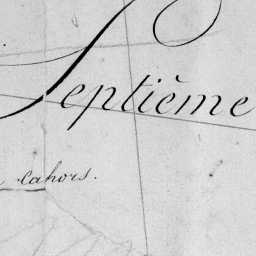 Septième
cahors.